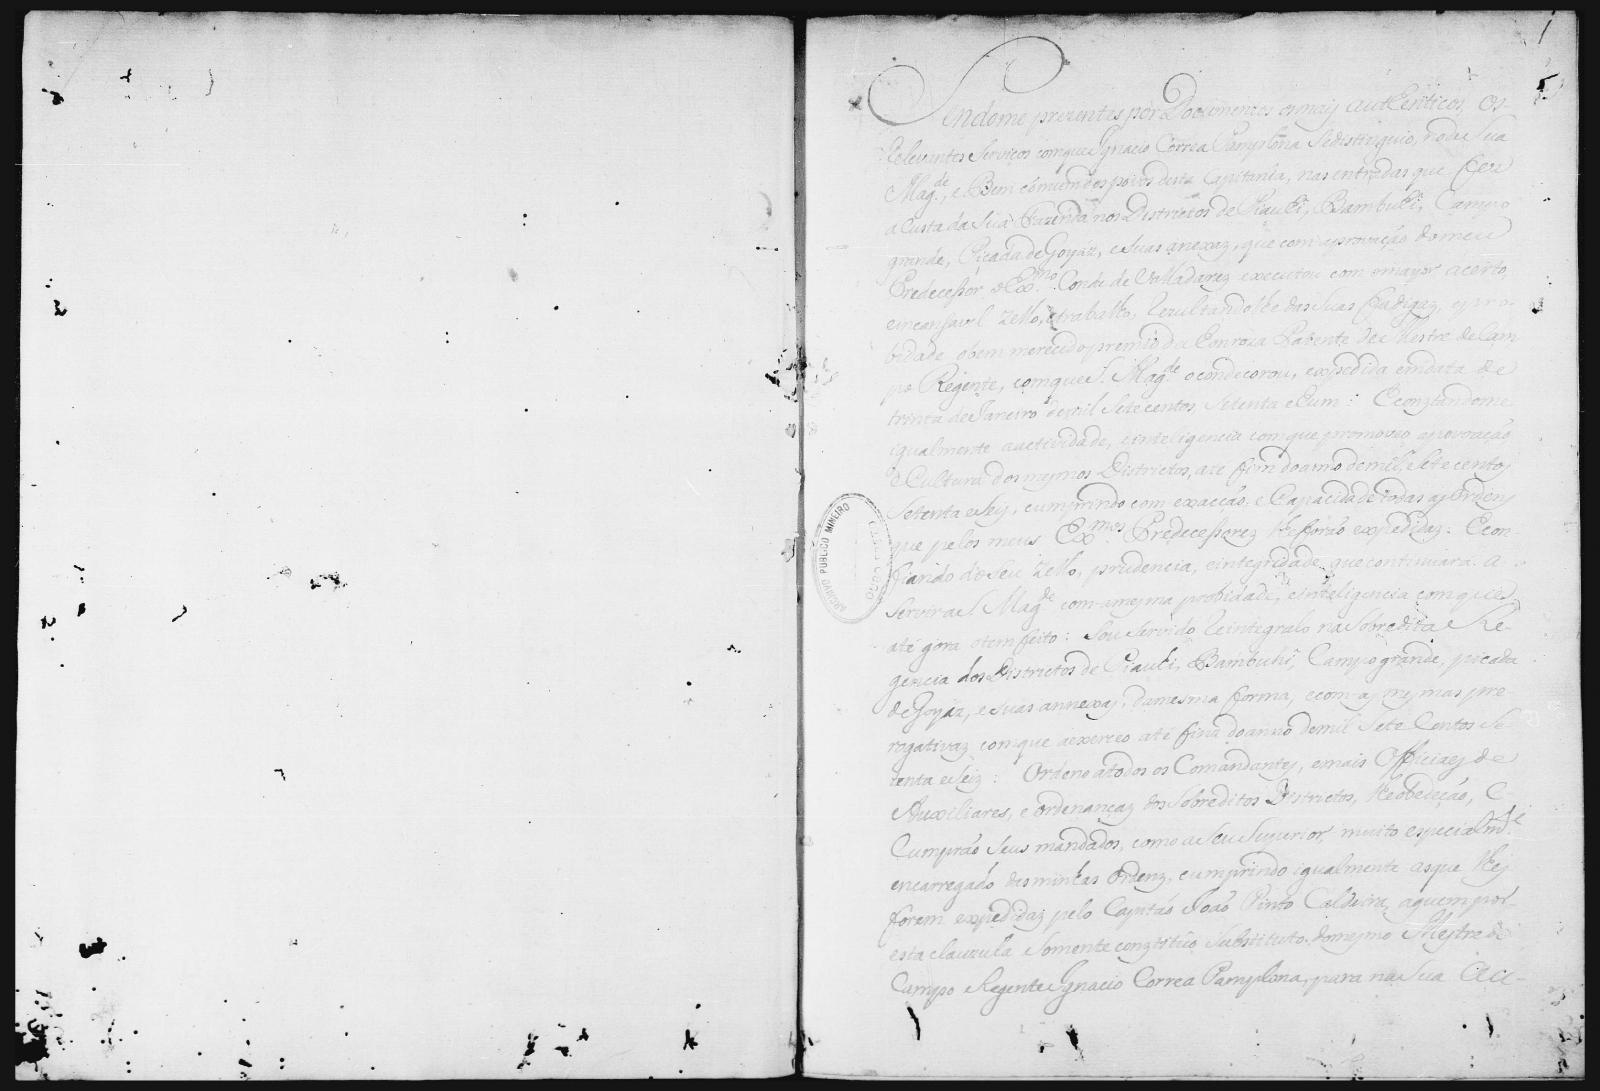 1
Sendome prezentes por Documentos os mais authenticos, os
Relevantes Serviços comque Ignacio Correa Pamplona Sedistinguio, no de Sua
Mag.de, e Bem cómum dos povos desta Capitania, nas entradas que fez
a Custa da Sua Fazenda nos Districtos de Piauhi, Bambuhi, Campo
grande, Picada de Goyaz, e Suas anexaz, que com aprovação domeu
Predecessor o Ex.mo Conde de Valladarez executou com omayor acerto,
eincansavel Zello, etrabalho, Rezultandolhe das Suas fadigaz, e pro-
bidade obem merecido premio da Honroza Patente de Mestre de Cam
po Regente, comque S. Mag.de o condecorou, expedida emdata de
trinta de Janeiro demil Setecentos, Setenta ehum: E conztandome
igualmente aactividade, einteligencia comque promoveo apovoação
e Cultura dos mesmos Districtos, até fim doanno demil, e Setecentos
Setenta eSeis, cumprindo com exacção, e Capacidade todas as Ordens
que pelos meus Ex.mos Predecessorez lhe forão expedidaz: E con-
fiando do Seu Zello, prudencia, eintegridade, que continuará a
Servir a S. Mag.de com amesma probidade, einteligencia comque
até gora otem feito: Sou Servido Reintegralo na Sobredita Re-
gencia dos Districtos de Piauhi, Bambuhi, Campo grande, picada
de Goyaz, e Suas annexas, damesma forma, ecom as mesmas pre-
rogativaz comque aexerceo até fim doanno demil Sete Centos Se
tenta eSeiz: Ordeno atodos os Comandantes, emais Officiaes de
Auxiliares, e ordenançaz dos Sobreditos Districtos, lhe obedeção, e
Cumprão Seus mandados, como a Seu Superior, muito especialm.te
encarregado das minhas Ordens, cumprindo igualmente as que lhes
forem expedidaz pelo Capitão João Pinto Caldeira, aquem por
esta clauzula Somente conztituo Substituto domesmo Mestre de
Campo Regente Ignacio Correa Pamplona, para na Sua
ARCHIVO PUBLICO MINEIRO